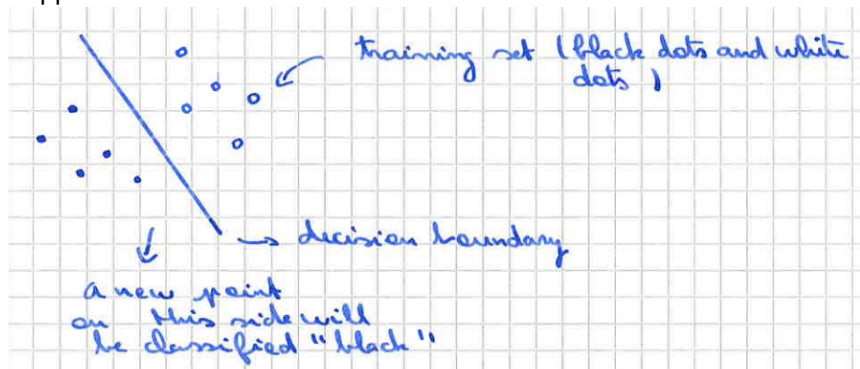 training set (black dots and white
dots)
decision boundary
a new point
on this side will
be classified "black"